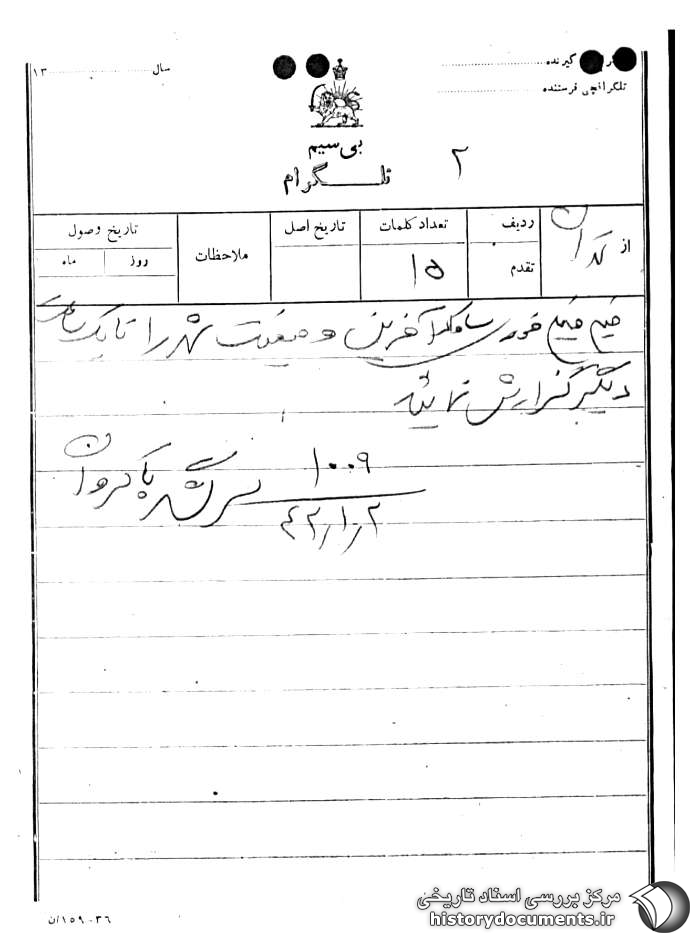 گیرنده
سال ۱۳
تلگرافچی فرستنده
بی سیم
تلگرام
۲
از
ردیف
تقدم
تعداد کلمات
۱۵
تاریخ اصل
ملاحظات
تاریخ وصول
روز
ماه
خیلی خیلی فوری ساواک آخرین وضعیت شهر را تا یک ساعت
دیگر گزارش نمائید
۱۰۰۹
۴۲/۱/۲
سرلشکر پاکروان
۳۶-۱۵۹/ن
مرکز بررسی اسناد تاریخی
historydocuments.ir